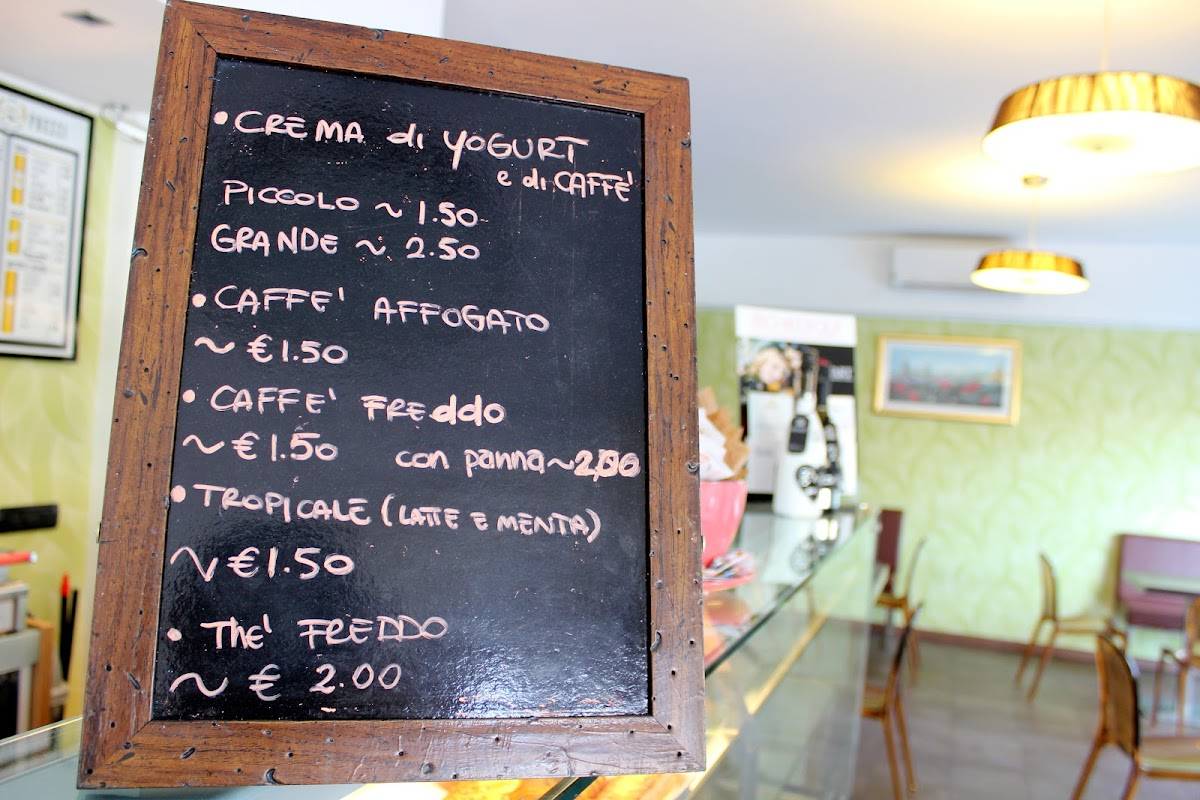 • CREMA di YOGURT
e di CAFFE'
PICCOLO ~ 1.50
GRANDE ~ 2.50
• CAFFE' AFFOGATO
~ € 1.50
• CAFFE' FREddO
~ € 1.50 con panna ~ 2,00
• TROPICALE (LATTE E MENTA)
~ € 1.50
• The' FREDDO
~ € 2.00